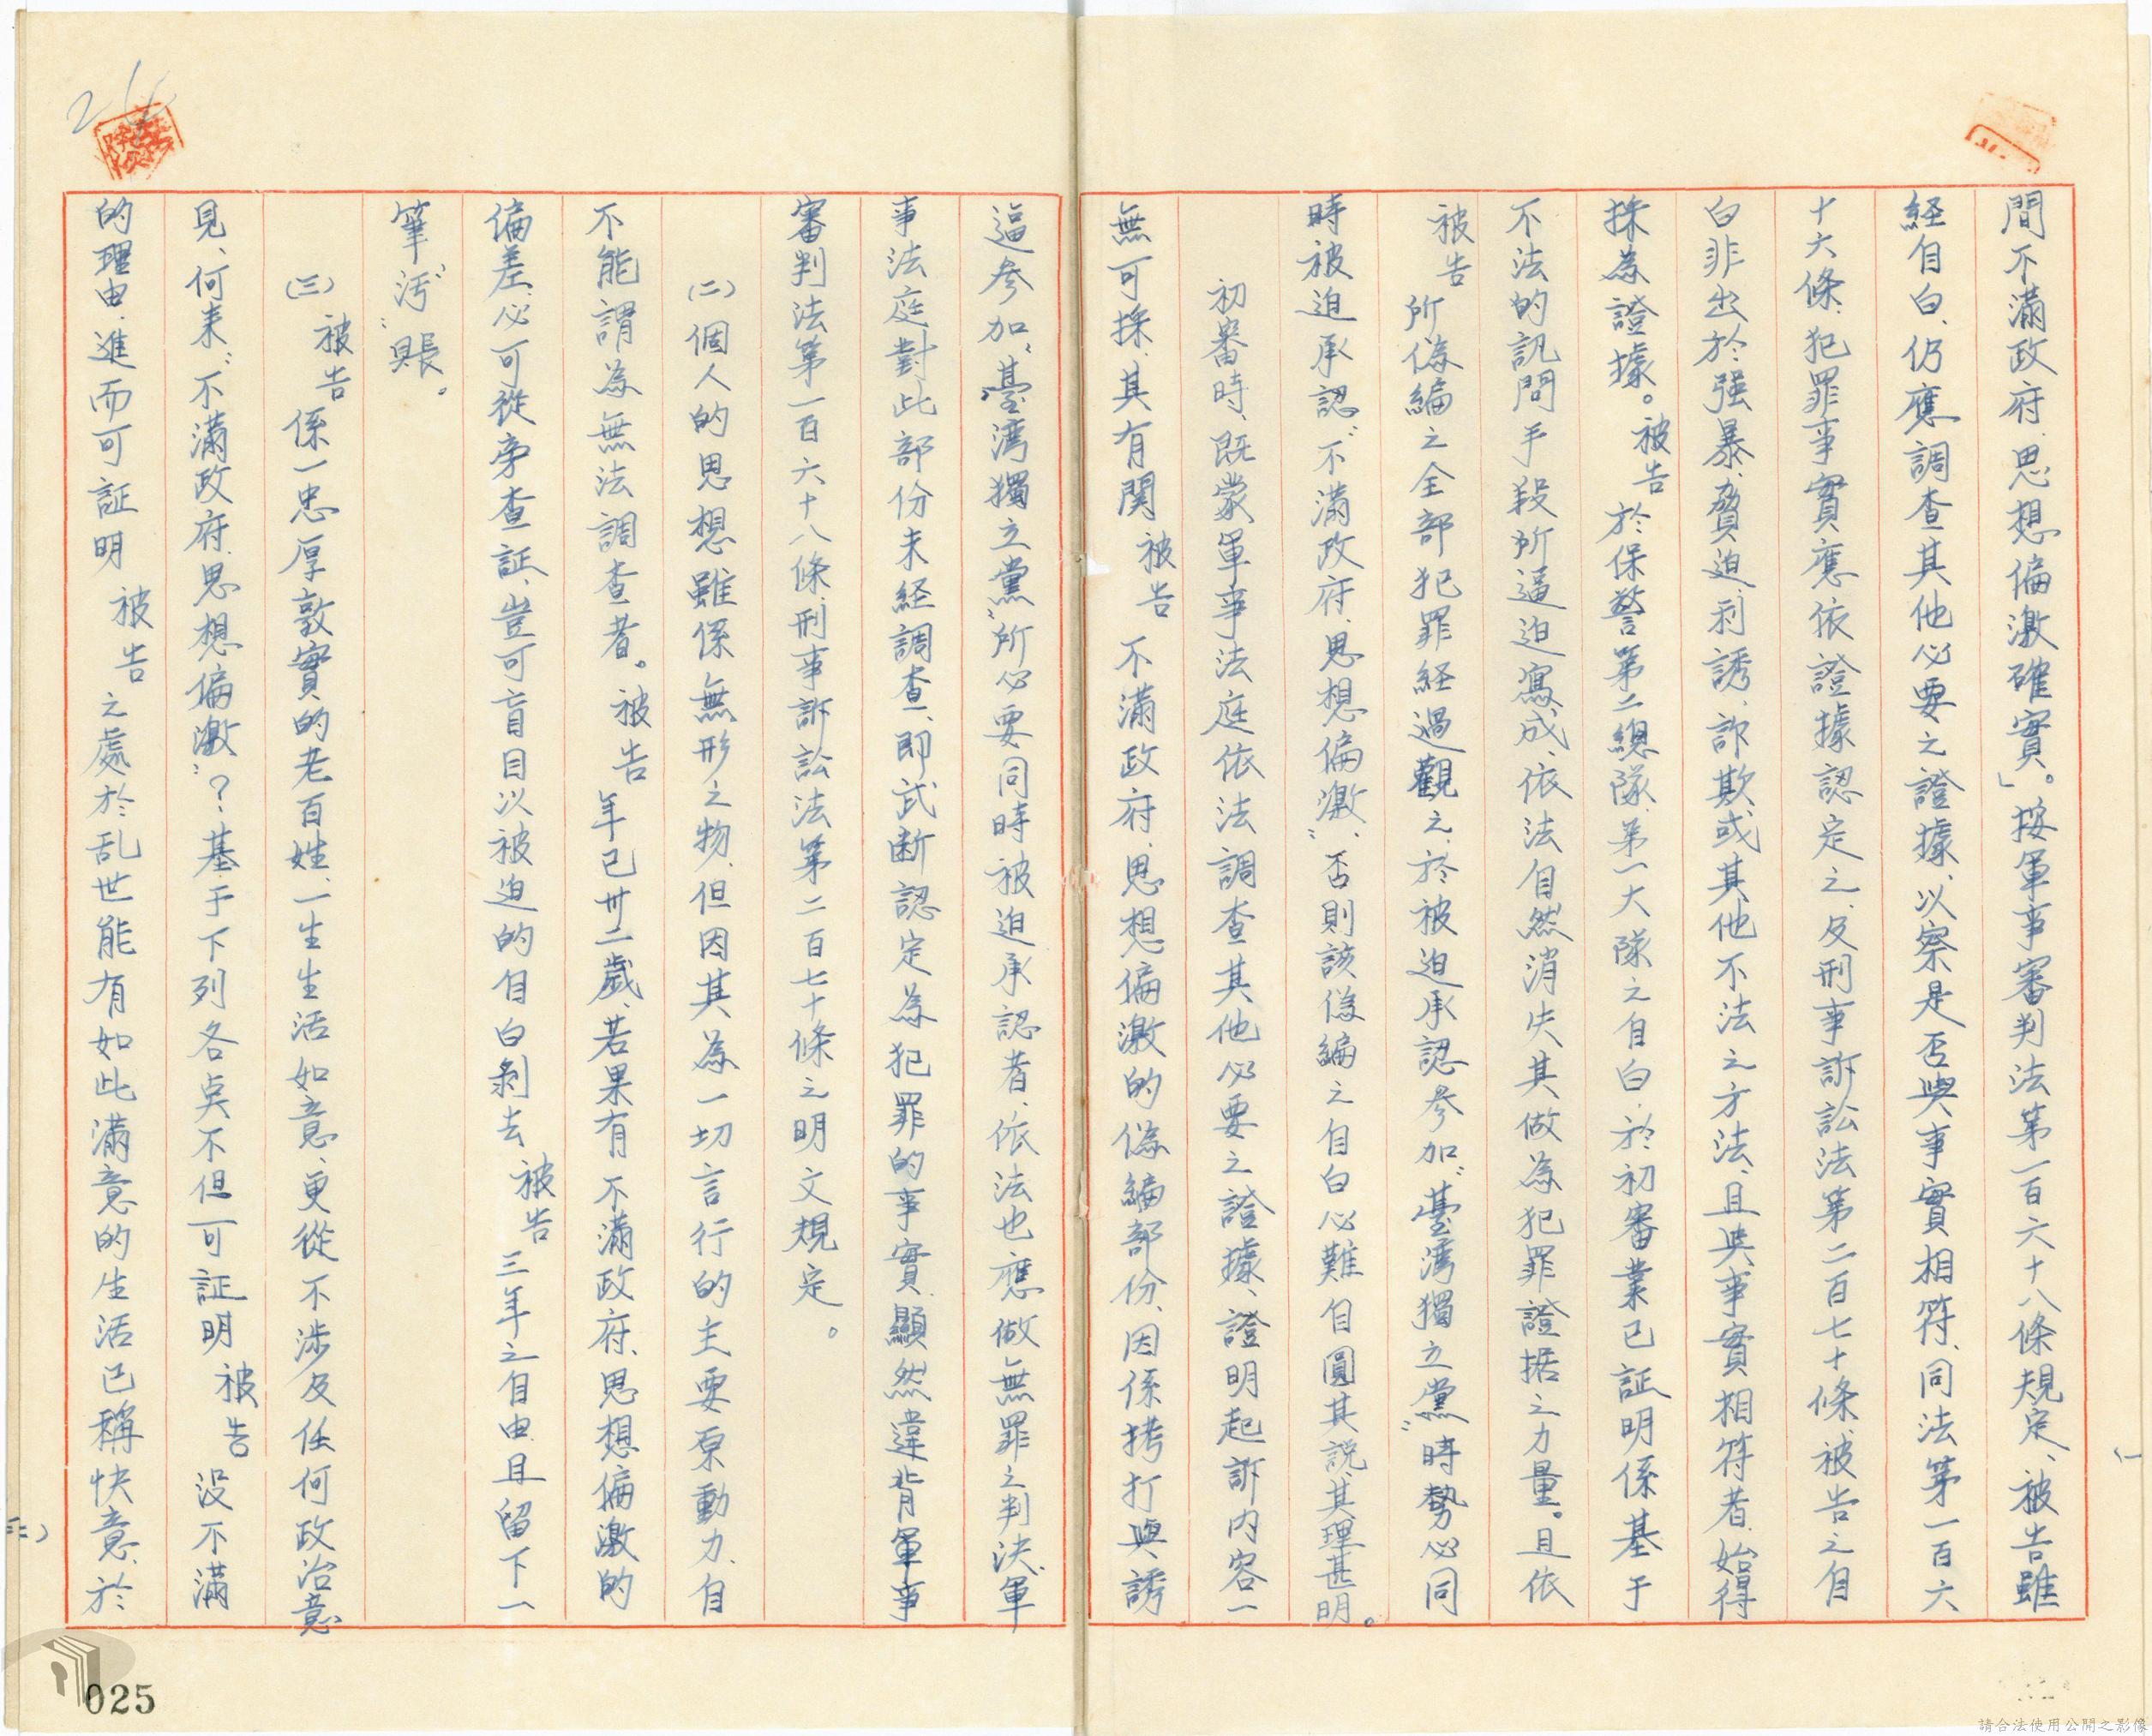 間不滿政府、思想偏激確實。」按軍事審判法第一百六十八條規定、被告雖
経自白、仍應調查其他必要之證據、以察是否與事實相符、同法第一百六
十六條、犯罪事實應依證據認定之、及刑事訴訟法第二百七十條、被告之自
白非出於强暴、脅迫、利誘、詐欺或其他不法之方法、且與事實相符者、始得
採為證據。被告於保警第二總隊、第一大隊之自白、於初審業已証明係基于
不法的訊問手段所逼迫寫成、依法自然消失其做為犯罪證据之力量。且依
被告所偽編之全部犯罪経過觀之、於被迫承認參加〝臺灣獨立黨〞時勢必同
時被迫承認〝不滿政府、思想偏激〞、否則該偽編之自白必難自圓其説、其理甚明。
初審時、既蒙軍事法庭依法調查其他必要之證據、證明起訴内容一
無可採、其有関被告不滿政府、思想偏激的偽編部份、因係拷打與誘
逼參加〝臺灣獨立黨〞所必要同時被迫承認者、依法也應做無罪之判決、軍
事法庭對此部份未経調查、即武断認定為犯罪的事實、顯然違背軍事
審判法第一百六十八條、刑事訴訟法第二百七十條之明文規定。
(二)個人的思想雖係無形之物、但因其為一切言行的主要原動力、自
不能謂為無法調查者。被告年已卅二歲、若果有不滿政府、思想偏激的
偏差、必可從旁查証、豈可盲目以被迫的自白剝去被告三年之自由、且留下一
筆〝污〞賬。
(三)被告係一忠厚敦實的老百姓、一生生活如意、更從不涉及任何政治意
見、何来〝不滿政府、思想偏激〞?基于下列各点不但可証明被告没不滿
的理由、進而可証明被告之處於乱世能有如此滿意的生活已稱快意、於
025
請合法使用公開之影像